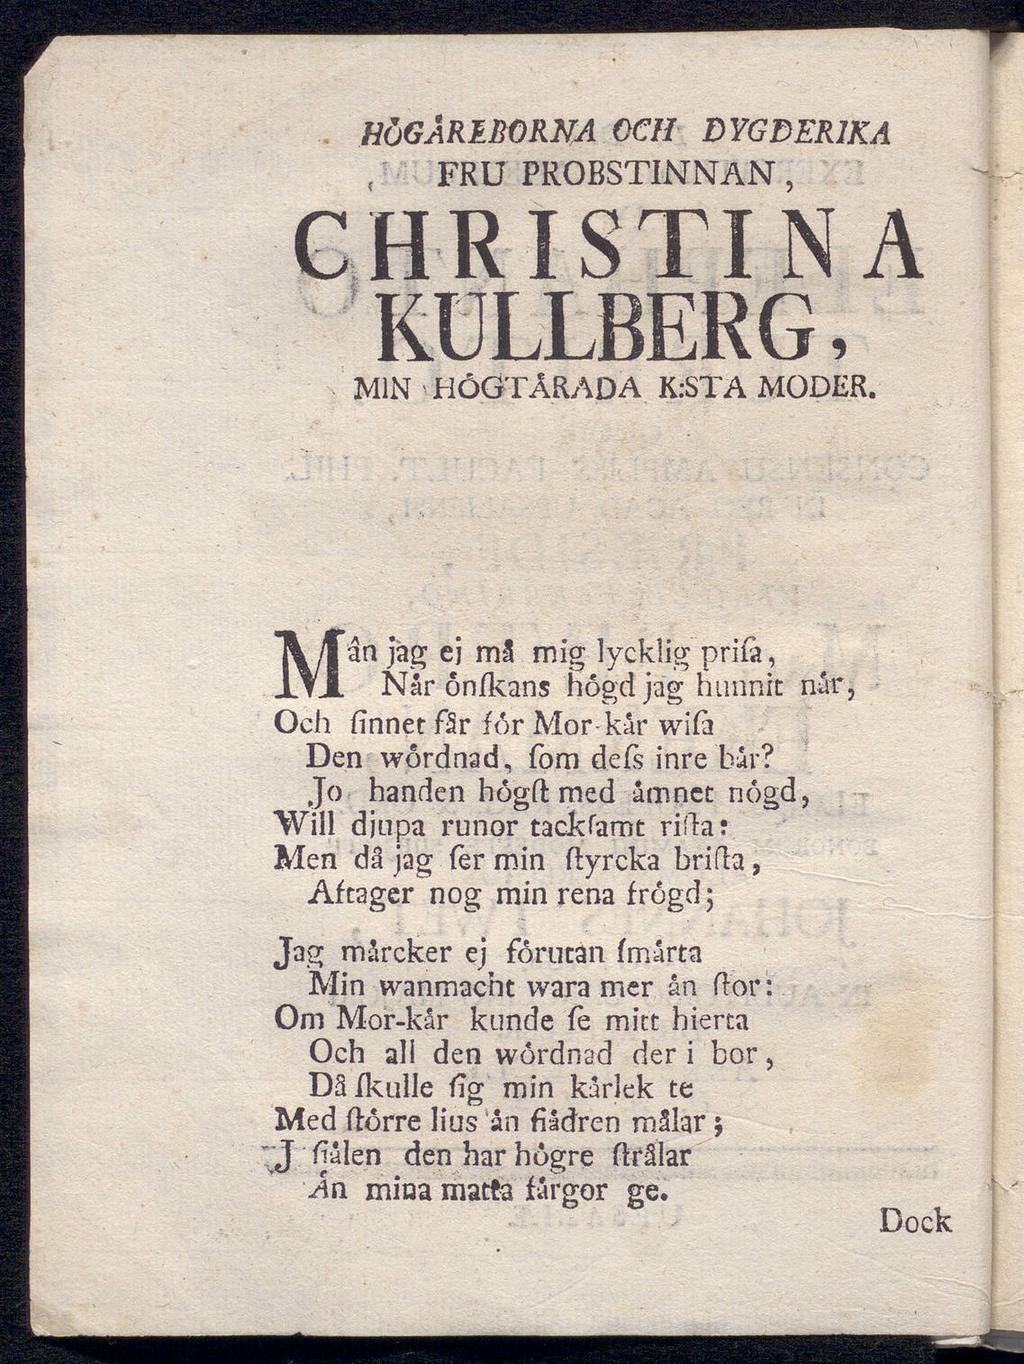 HÖGÅREBORNA OCH DYGDERIKA
FRU PROBSTINNAN,
CHRISTINA
KULLBERG,
MIN HÖGTÅRADA K:STA MODER.
Mån jag ej må mig lycklig priſa,
Når önſkans högd jag hunnit når,
Och ſinnet får för Mor-kår wiſa
Den wördnad, ſom deſs inre bår?
Jo handen högſt med åmnet nögd,
Will djupa runor tackſamt riſta:
Men då jag ſer min ſtyrcka briſta,
Aftager nog min rena frögd;
Jag mårcker ej förutan ſmårta
Min wanmacht wara mer ån ſtor:
Om Mor-kår kunde ſe mitt hierta
Och all den wördnad der i bor,
Då ſkulle ſig min kårlek te
Med ſtörre lius ån fiådren målar;
J ſiålen den har högre ſtrålar
Ån mina matta fårgor ge.
Dock